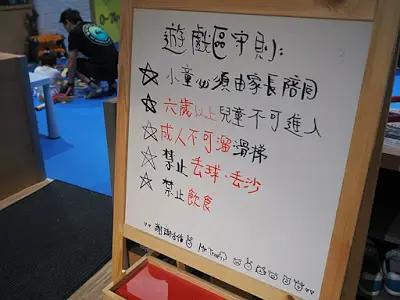 遊戲區守則:
☆ 小童必須由家長陪同
☆ 六歲以上兒童不可進入
☆ 成人不可溜滑梯
☆ 禁止丟球、丟沙
☆ 禁止飲食